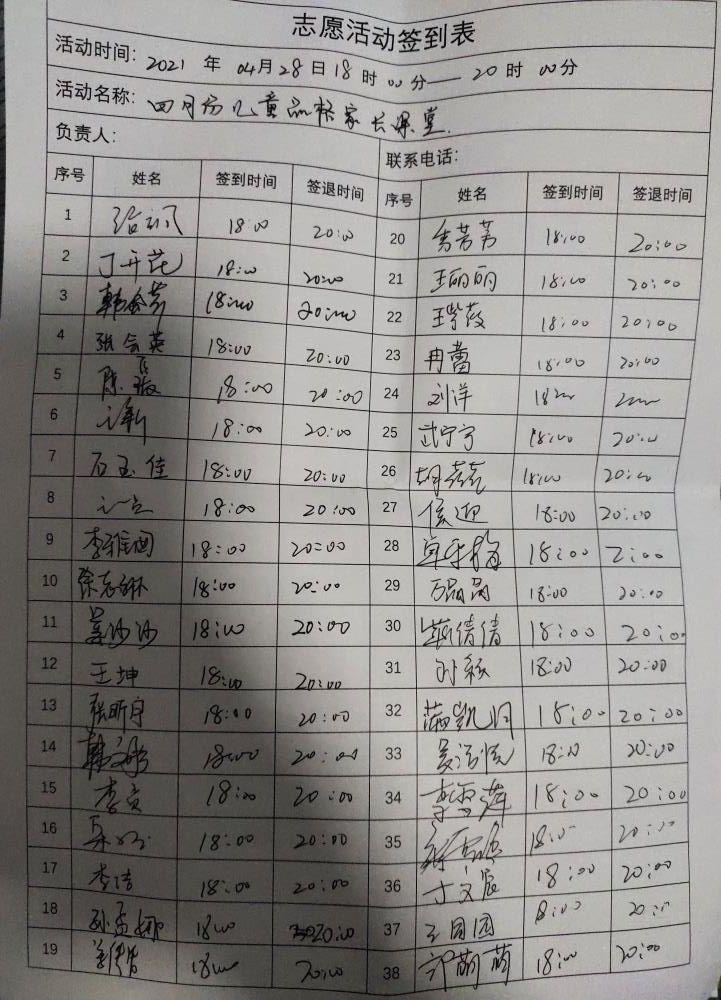 志愿活动签到表
活动时间: 2021 年 04月28日18时00分—20时00分
活动名称: 四月份儿童品格家长课堂.
负责人: 联系电话:
序号 姓名 签到时间 签退时间 序号 姓名 签到时间 签退时间
1 18:00 20:00 20 芳芳 18:00 20:00
2 丁开花 18:00 20:00 21 王丽丽 18:00 20:00
3 18:00 20:00 22 王紫薇 18:00 20:00
4 张会英 18:00 20:00 23 冉蕾 18:00 20:00
5 陈 18:00 20:00 24 刘洋 18
6 18:00 20:00 25 武宁宁 18:00 20:00
7 石玉佳 18:00 20:00 26 胡 18:00 20:00
8 18:00 20:00 27 侯迎 18:00 20:00
9 李雅 18:00 20:00 28 18:00 2:00
10 徐志琳 18:00 20:00 29 万晶晶 18:00 20:00
11 姜沙沙 18:00 20:00 30 倩倩 18:00 20:00
12 王坤 18:00 20:00 31 孙 18:00 20:00
13 张昕宇 18:00 20:00 32 凯月 18:00 20:00
14 韩 18:00 20:00 33 吴 18:00 20:00
15 李 18:00 20:00 34 李雪萍 18:00 20:00
16 18:00 20:00 35 18:00 20:00
17 李洁 18:00 20:00 36 丁文宸 18:00 20:00
18 孙孟娜 18:00 20:00 37 王园园 8:00 20:00
19 18:00 20:00 38 萌萌 18:00 20:00